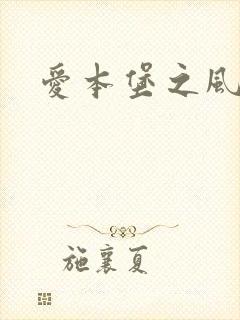 愛本堡之風
施襄夏